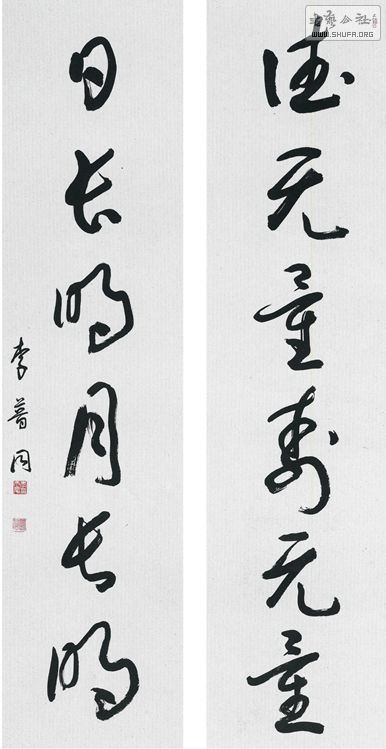 德无量寿无量
日长明月长明
李普同
书艺公社
WWW.SHUFA.ORG